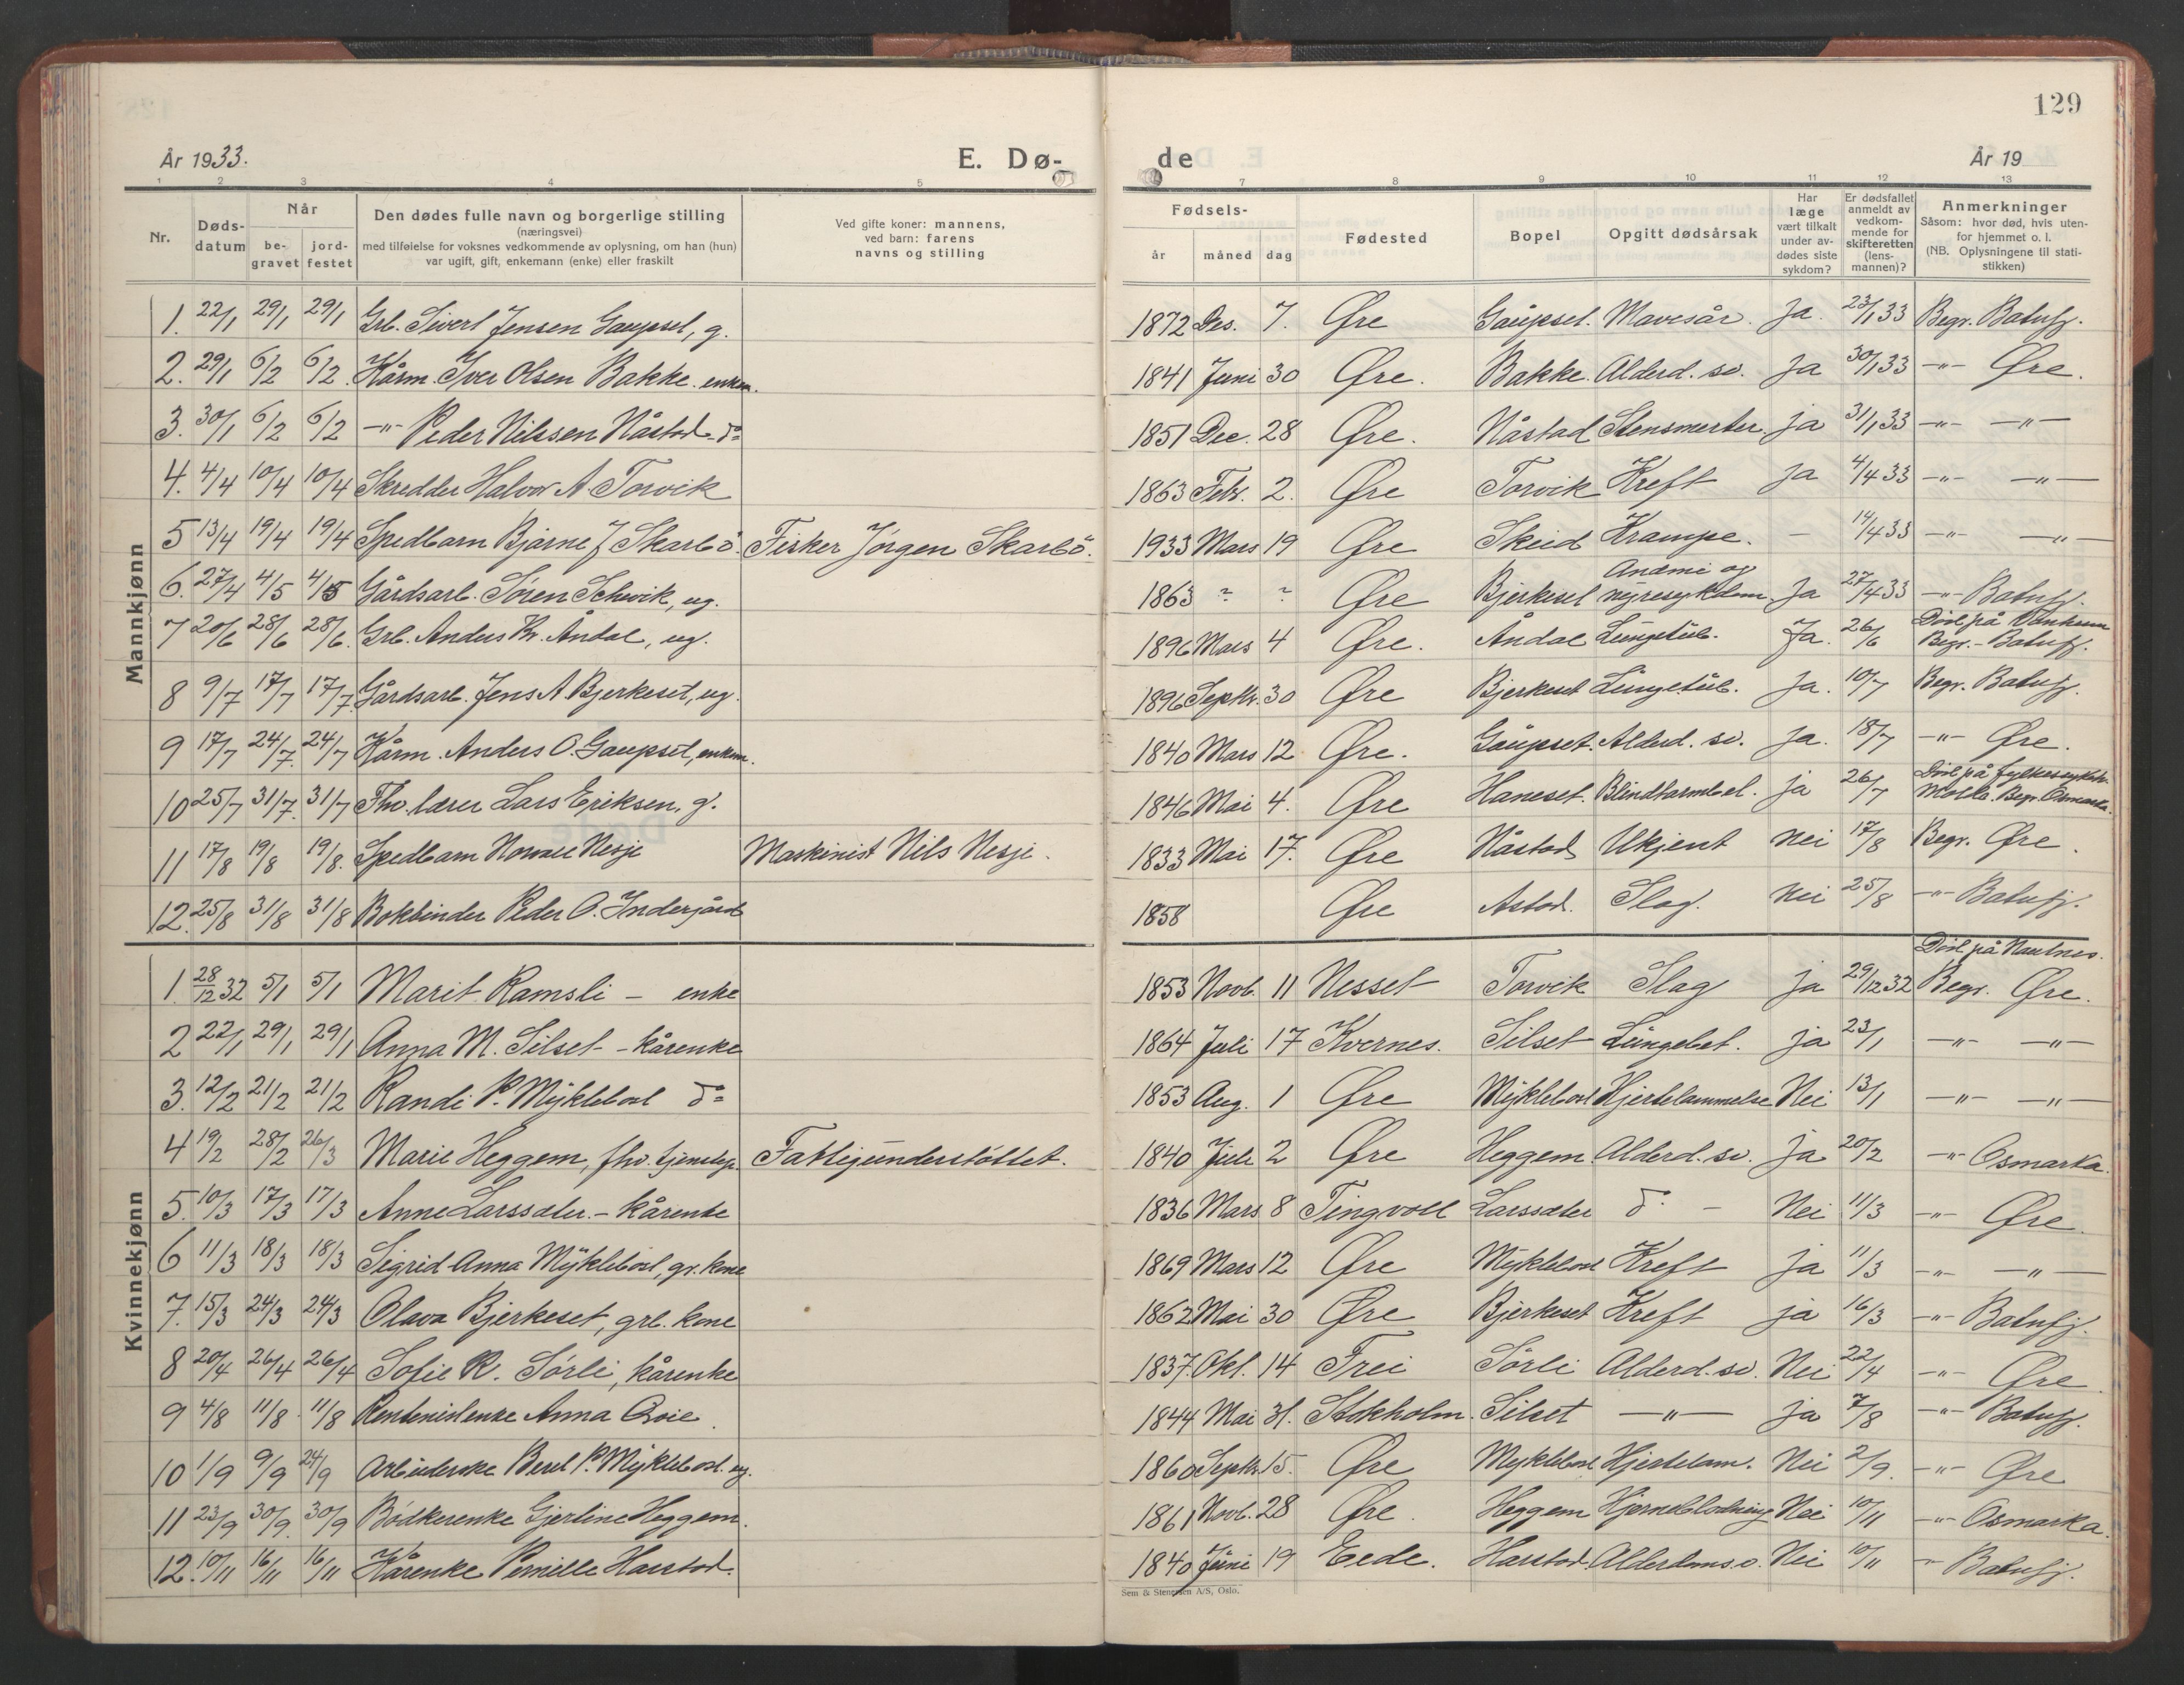 129
År 1933.
E. Dø-
de
År 19
1 2 3 4 5 7 8 9 10 11 12 13
Nr.
Døds-
datum
Når
be-
gravet
jord-
festet
Den dødes fulle navn og borgerlige stilling
(næringsvei)
med tilføielse for voksnes vedkommende av oplysning, om han (hun)
var ugift, gift, enkemann (enke) eller fraskilt
Ved gifte koner: mannens,
ved barn: farens
navns og stilling
Fødsels-
år måned dag
Fødested
Bopel
Opgitt dødsårsak
Har
læge
vært tilkalt
under av-
dødes siste
sykdom?
Er dødsfallet
anmeldt av
vedkom-
mende for
skifteretten
(lens-
mannen)?
Anmerkninger
Såsom: hvor død, hvis uten-
for hjemmet o. l.
(NB. Oplysningene til stati-
stikken)
Mannkjønn
1. 22/1 29/1 29/1 Grb. Sivert Jensen Gaupset, g. 1872 Des. 7. Øre Gaupset. Mavesår. Ja. 23/1 33 Begr. Batnfj.
2. 29/1 6/2 6/2. Kårm. Iver Olsen Bakke. enkem. 1841 Juni 30 Øre. Bakke. Alderd. sv. Ja 30/1 33 -"- Øre.
3. 30/1 6/2 6/2 -"- Peder Nilssen Nåstad - do 1851 Dec. 28 Øre. Nåstad Stensmerter. ja 31/1 33 -"- -"-
4. 4/4 10/4 10/4 Skredder Halvor A. Torvik 1863 Febr. 2. Øre Torvik Kreft ja 4/4 33 -"- -"-
5 13/4 19/4 19/4 Spedbarn Bjarne J Skarbö. Fisker Jörgen Skarbö. 1933 Mars 19 Øre Skeid Krampe. - 14/4 33 -"- -"-
6. 27/4 4/5 4/5 Gårdsarb. Sören Schevik, ug. 1863 ? ? Øre Bjerkeset Anemi og nyresykdom. Ja 27/4 33 -"- Batnfj.
7 20/6 28/6 28/6. Grb. Anders Kr. Åndal, ug. 1896 Mars 4 Øre. Åndal Lungetub. Ja. 26/6 Död på Begr. - Batnfj.
8 9/7 17/7 17/7. Gårdsarb. Jens A. Bjerkeset, ug. 1896 Septbr. 30 Øre Bjerkeset Lungetub. Ja. 10/7 Begr. Batnfj.
9 17/7 24/7. 24/7 Kårm. Anders O. Gaupset, enkem. 1840 Mars 12 Øre. Gaupset. Alderd. sv. Ja. 18/7 -"- Øre.
10 25/7 31/7. 31/7 Fhv. lærer Lars Eriksen, g. 1846 Mai 4. Øre Haneset. Blindtarmbet. ja 26/7 Död på fylkessykeh. Molde. Begr. Osmarka.
11 17/8 19/8 19/8. Spedbarn Nesje Maskinist Nils Nesje. 1833 Mai 17. Øre Nåstad Ukjent nei 17/8 Begr. Øre.
12. 25/8 31/8 31/8 Bokbinder Peder O. Indergård 1858 Øre Astad. Slag. nei 25/8 -"- Batnfj.
Kvinnekjønn
1. 28/12 32 5/1 5/1 Marit Ramsli - enke 1853 Novb. 11 Nesset Torvik Slag ja 29/12 32 Död på Nautnes. Begr. Øre.
2 22/1 29/1 29/1 Anna M. Silset - kårenke 1864 Juli 17 Kvernes. Silset Lungebet. ja 23/1 -"- -"-
3. 12/2 21/2 21/2 Randi P. Myklebost do 1853 Aug. 1 Øre Myklebost Hjertelammelse Nei 13/1 -"- -"-
4 19/2 28/2 26/3 Marie Heggem, fhv. tjenestep. Fattigunderstöttet. 1840 Juli 2 Øre Heggem. Alderd. sv. ja 20/2 -"- Osmarka.
5. 10/3 17/3 17/3 Anne Larssæter. - kårenke 1836 Mars 8 Tingvoll Larssæter do - Nei 11/3 -"- Øre.
6 11/3 18/3 18/3 Sigrid Anna Myklebost, gr. kone 1869 Mars 12 Øre Myklebost Kreft ja 11/3 -"- -"-
7. 15/3 24/3 24/3 Olava Bjerkeset, grb. kone 1862 Mai 30 Øre Bjerkeset Kreft ja 16/3 -"- Batnfj.
8 20/4 26/4 26/4 Sofie R. Sörli, kårenke 1837. Okt. 14 Frei Sörli Alderd. sv. Nei 22/4 -"- Øre.
9 4/8 11/8 11/8 Rentenistenke Anna Qvie. 1844 Mai 31. Stokholm. Silset -"- ja 7/8 -"- Batnfj.
10 1/9 9/9 24/9 Arbeiderske Beret P. Myklebost. ug. 1860 Septbr. 15. Øre Myklebost Hjertelam. Nei 2/9. -"- Øre
11 23/9 30/9. 30/9 Bödkerenke Gjertine Heggem. 1861 Novb. 28 Øre. Heggem Hjerneblödning Nei 10/11 -"- Osmarka.
12. 10/11 16/11 16/11 Kårenke Pernille Harstad. 1840 Juni 19 Eede. Harstad. Alderdoms. s. Nei 10/11 " Batnfj.
Sem & Stenersen A/S, Oslo.